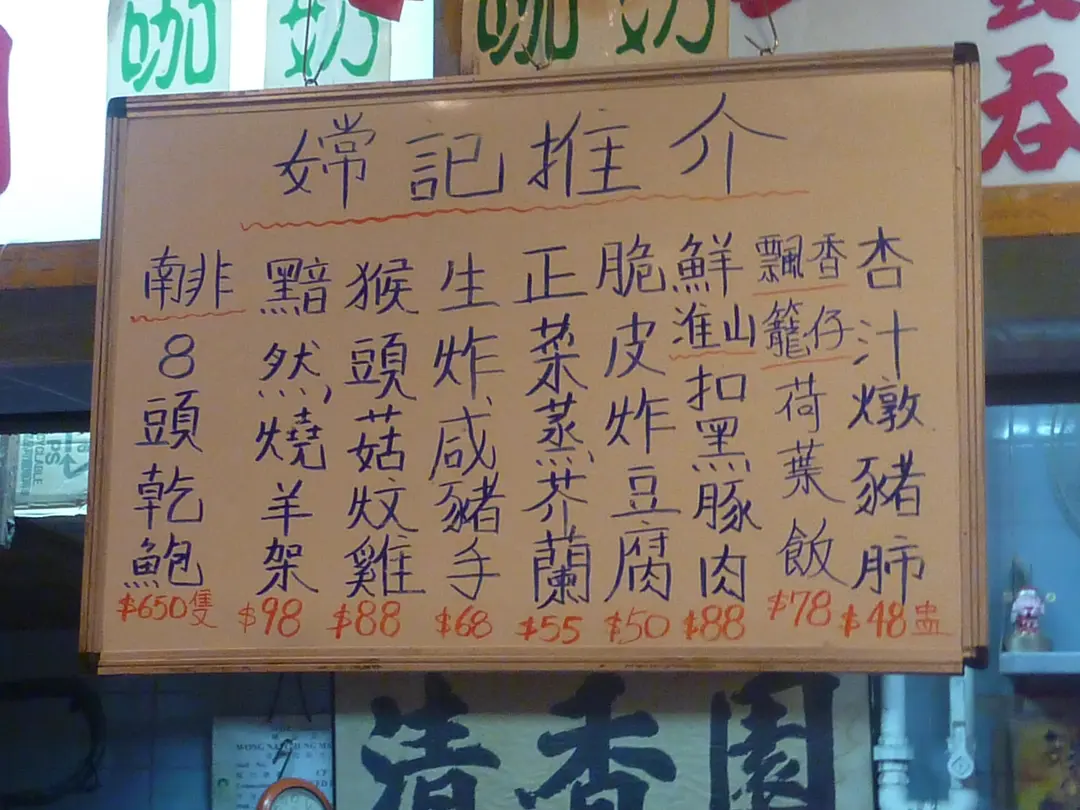 咖 奶 咖 奶
吞
嫦記推介
杏汁燉豬肺 $48盅
飄香籠仔荷葉飯 $78
鮮淮山扣黑豚肉 $88
脆皮炸豆腐 $50
正菜蒸芥蘭 $55
生炸咸豬手 $68
猴頭菇炆雞 $88
黯然燒羊架 $98
南非8頭乾鮑 $650隻
清香園